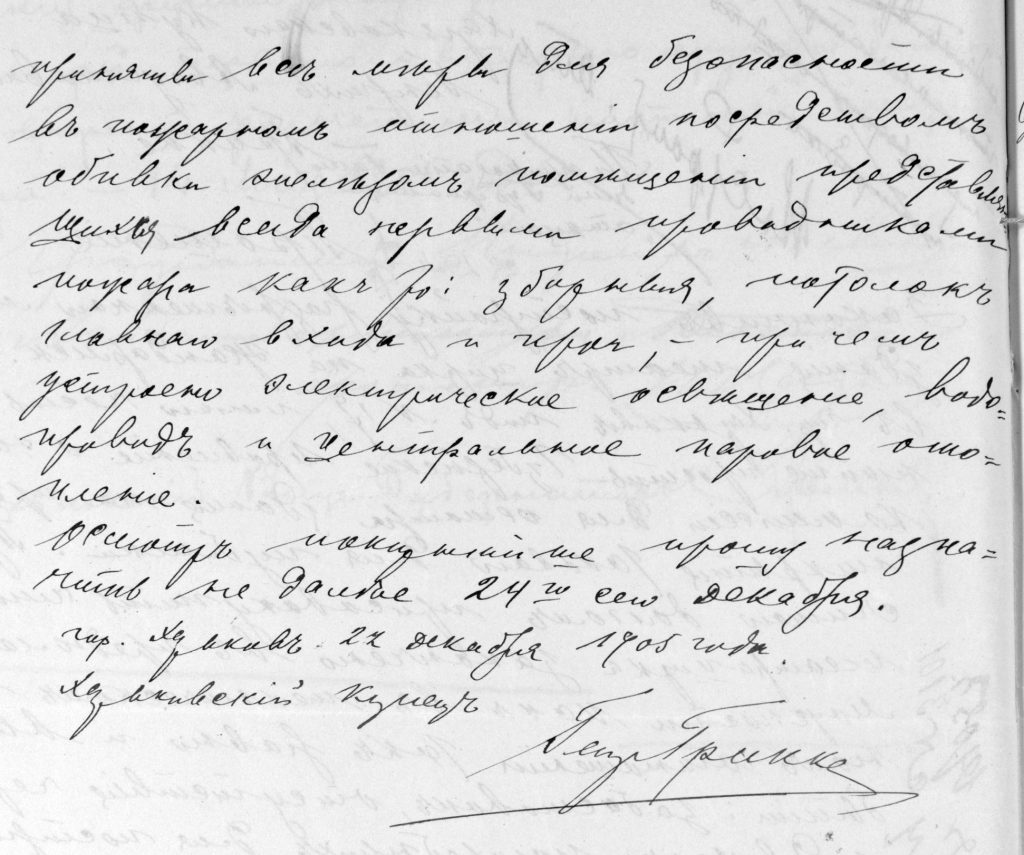 приняты всѣ мѣры для безопасности
въ пожарномъ отношеніи посредствомъ
обивки желѣзомъ помѣщеній представляю
щихся всегда первыми проводниками
пожара какъ то: уборныя, потолокъ
главнаго входа и проч, – при чемъ
устроено электрическое освѣщеніе, водо=
проводъ и центральное паровое ото=
пленіе.
Осмотръ покорнѣйше прошу назна=
чить не далѣе 24го сего декабря.
гор. Харьковъ. 22 декабря 1905 года.
Харьковскій Купецъ
Грикке